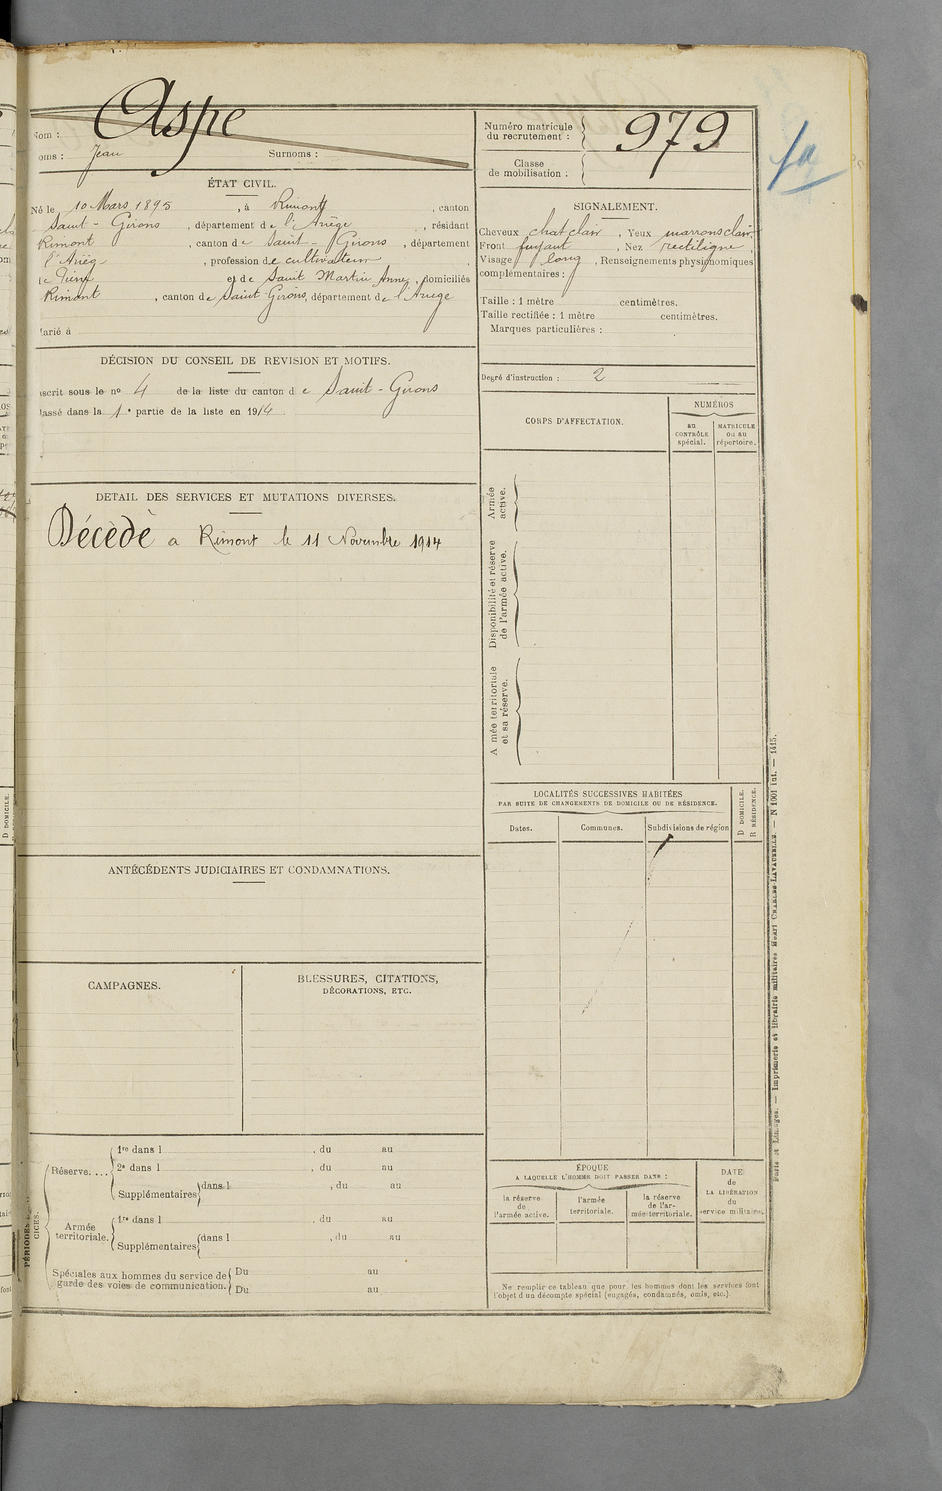 Nom : Aspe
oms : Jean Surnoms :
ÉTAT CIVIL.
Né le 10 Mars 1895, à Rimont, canton
Saint-Girons, département de l'Ariège, résidant
Rimont, canton de Saint-Girons, département
l'Arièg, profession de cultivateur,
de Pierre et de Sauit Martin Anne, domiciliés
Rimont, canton de Saint Girons, département de l'Ariège
arié à
DÉCISION DU CONSEIL DE REVISION ET MOTIFS.
nscrit sous le no 4 de la liste du canton de Saint-Girons
lassé dans la 1e partie de la liste en 1914
DETAIL DES SERVICES ET MUTATIONS DIVERSES.
Décèdè a Rimont le 11 Novembre 1914
ANTÉCÉDENTS JUDICIAIRES ET CONDAMNATIONS.
CAMPAGNES.
BLESSURES, CITATIONS,
DÉCORATIONS, ETC.
Réserve....
1re dans l , du au
2e dans l , du au
Supplémentaires dans l , du au
Armée
territoriale.
1re dans l , du au
Supplémentaires dans l , du au
Spéciales aux hommes du service de
garde des voies de communication.
Du au
Du au
Numéro matricule
du recrutement : 979
Classe
de mobilisation :
SIGNALEMENT.
Cheveux chat clair, Yeux marrons clair
Front fuyant, Nez rectiligne,
Visage long, Renseignements physionomiques
complémentaires :
Taille : 1 mètre centimètres.
Taille rectifiée : 1 mètre centimètres.
Marques particulières :
Degré d'instruction : 2
CORPS D'AFFECTATION.
NUMÉROS
au
CONTRÔLE
spécial.
MATRICULE
ou au
répertoire.
Armée
active.
Disponibilité et réserve
de l'armée active.
A mée territoriale
et sa réserve.
LOCALITÉS SUCCESSIVES HABITÉES
PAR SUITE DE CHANGEMENTS DE DOMICILE OU DE RÉSIDENCE.
Dates.
Communes.
Subdivisions de région
D DOMICILE.
R RÉSIDENCE.
ÉPOQUE
A LAQUELLE L'HOMME DOIT PASSER DANS :
la réserve
de
l'armée active.
l'armée
territoriale.
la réserve
de l'ar-
mée territoriale.
DATE
de
LA LIBÉRATION
du
service militaire.
Ne remplir ce tableau que pour les hommes dont les services font
l'objet d un décompte spécial (engagés, condamnés, omis, etc.).
Paris et Limoges. — Imprimerie et librairie militaires Henri CHARLES-LAVAUZELLE. — N 1901 int. — 1415.